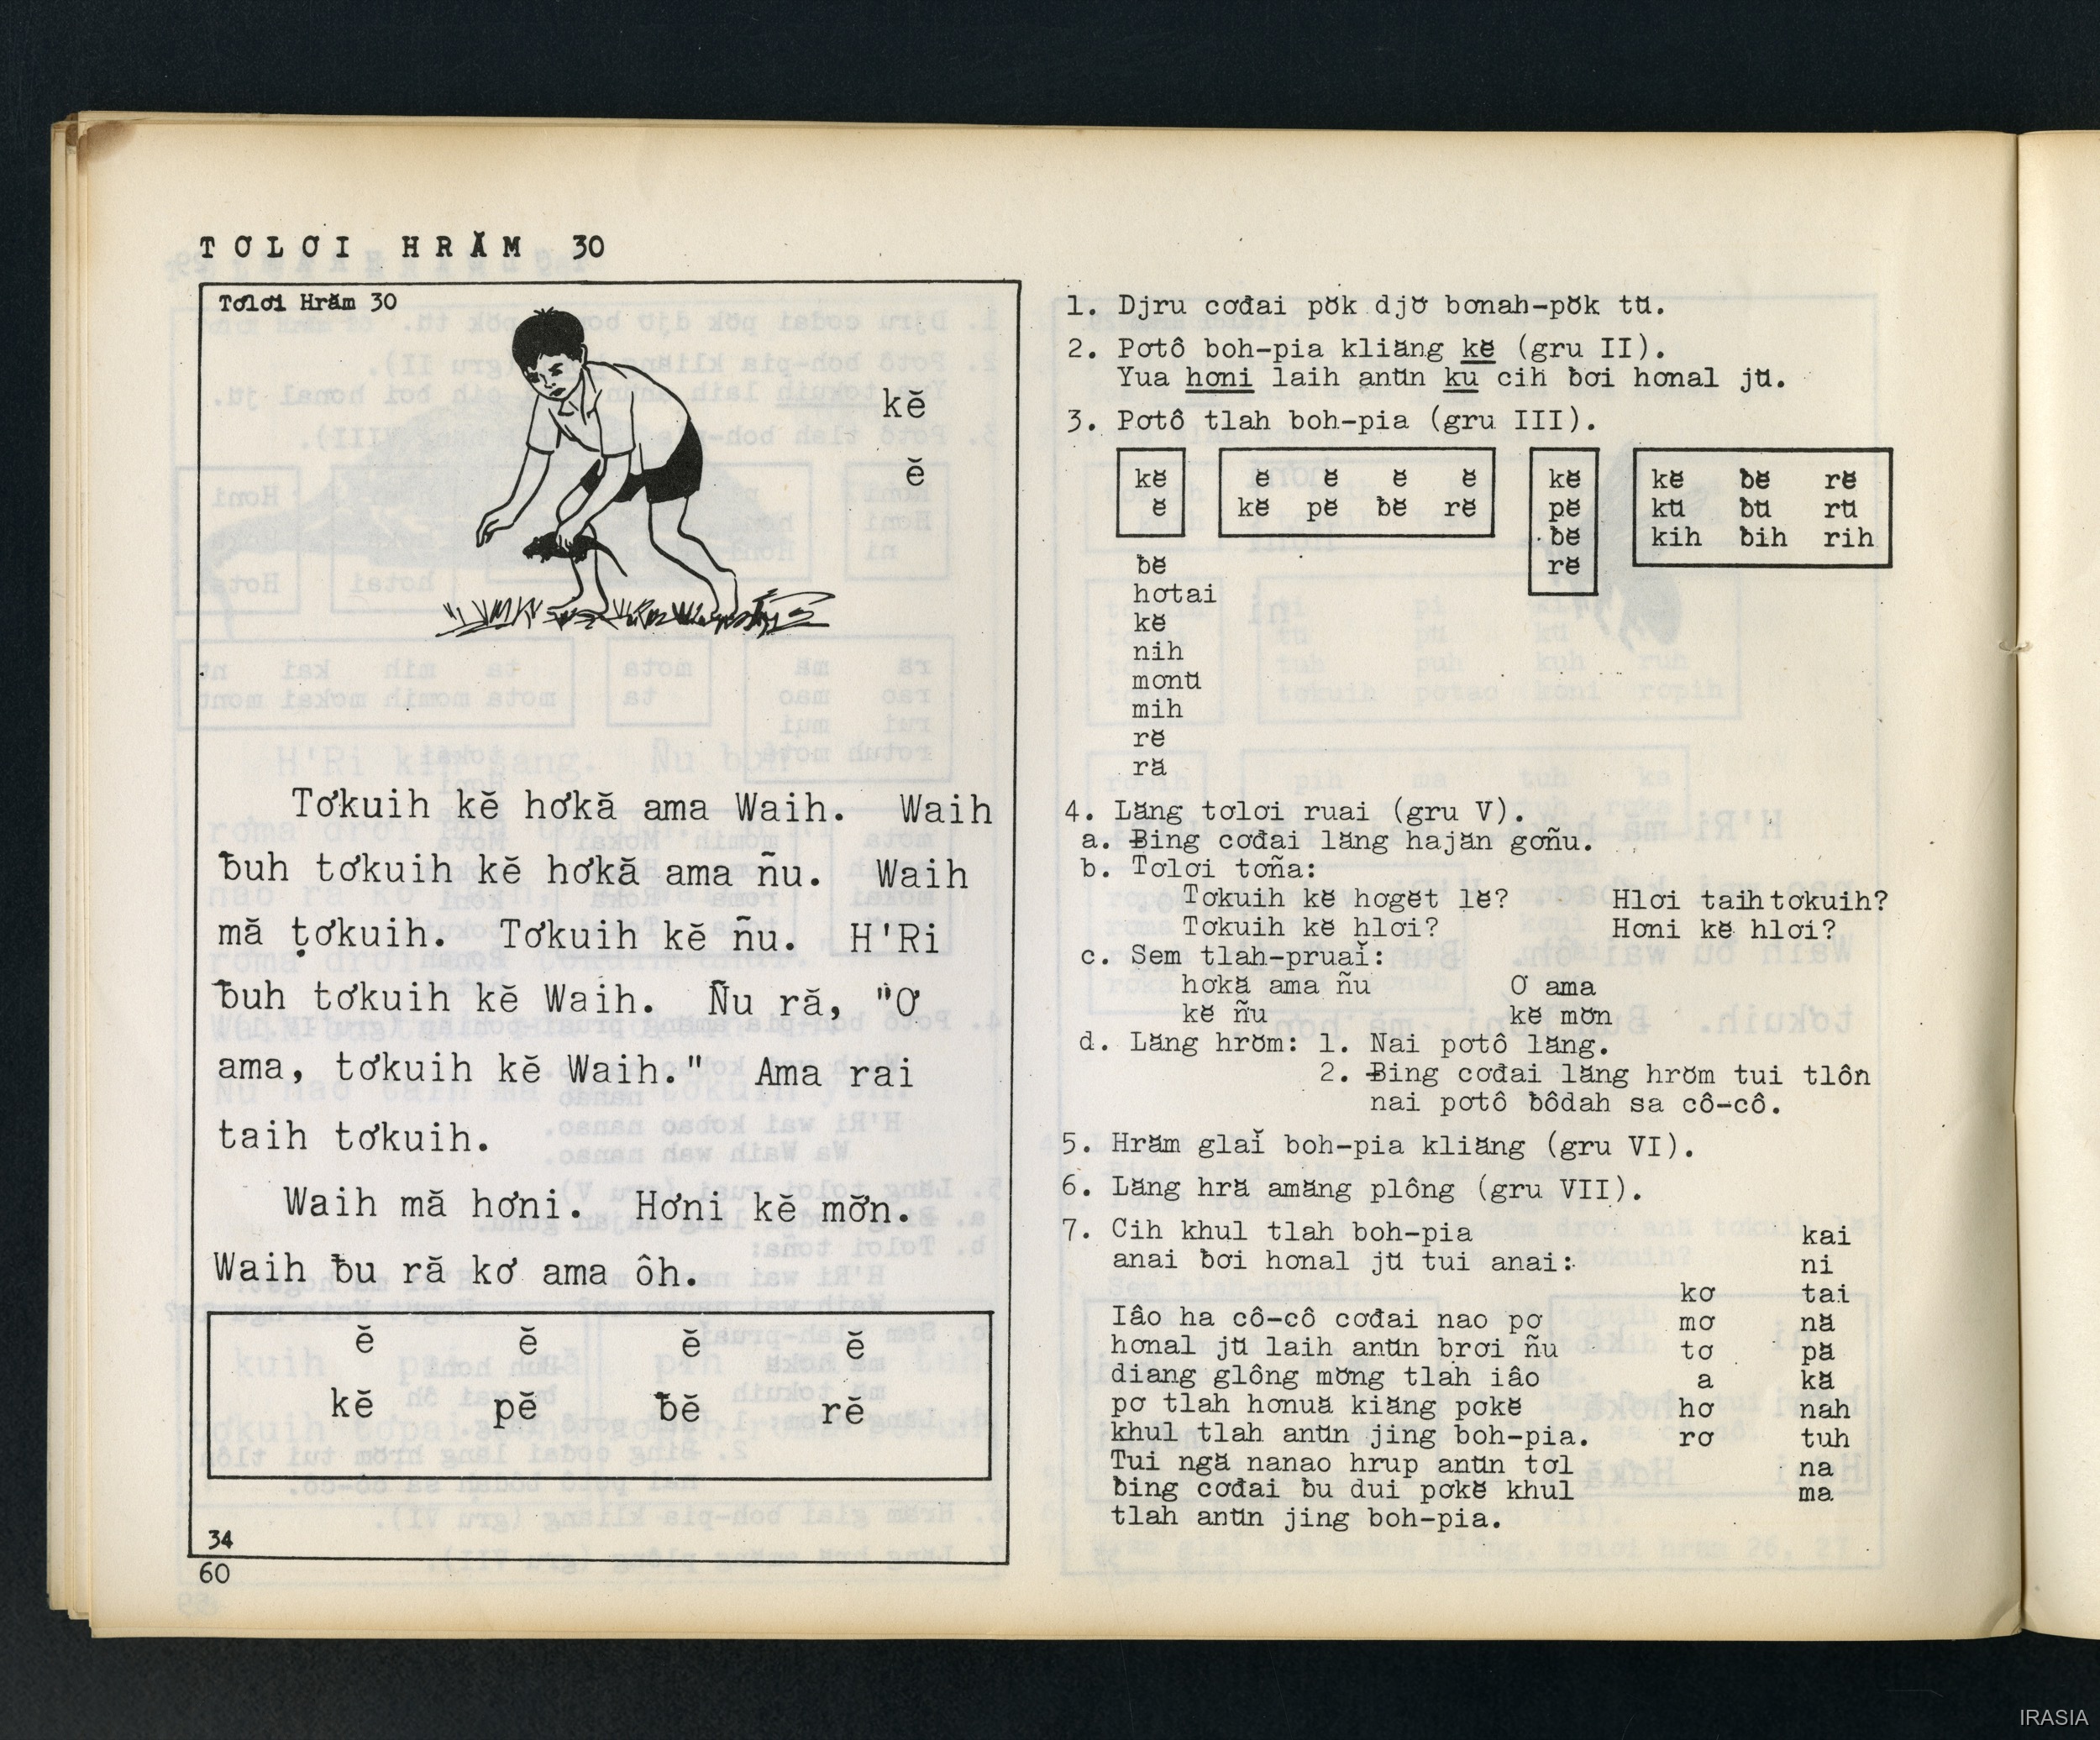 TƠLƠI HRĂM 30
Tơlơi Hrăm 30
kĕ
ĕ
Tơkuih kĕ hơkă ama Waih. Waih
ƀuh tơkuih kĕ hơkă ama ñu. Waih
mă tơkuih. Tơkuih kĕ ñu. H'Ri
ƀuh tơkuih kĕ Waih. Ñu ră, "Ơ
ama, tơkuih kĕ Waih." Ama rai
taih tơkuih.
Waih mă hơni. Hơni kĕ mơ̆n.
Waih ƀu ră kơ ama ôh.
ĕ ĕ ĕ ĕ
kĕ pĕ ƀĕ rĕ
34
60
1. Djru cơđai pŏk djơ̆ bơnah-pŏk tŭ.
2. Pơtô boh-pia kliăng kĕ (gru II).
Yua hơni laih anŭn ku cih ƀơi hơnal jŭ.
3. Pơtô tlah boh-pia (gru III).
kĕ
ĕ
ĕ ĕ ĕ ĕ
kĕ pĕ ƀĕ rĕ
kĕ
pĕ
ƀĕ
rĕ
kĕ ƀĕ rĕ
kŭ ƀŭ rŭ
kih ƀih rih
ƀĕ
hơtai
kĕ
nih
mơnŭ
mih
rĕ
ră
4. Lăng tơlơi ruai (gru V).
a. Ƀing cơđai lăng hajăn gơñu.
b. Tơlơi tơña:
Tơkuih kĕ hơgĕt lĕ? Hlơi taih tơkuih?
Tơkuih kĕ hlơi? Hơni kĕ hlơi?
c. Sem tlah-pruaĭ:
hơkă ama ñu Ơ ama
kĕ ñu kĕ mơ̆n
d. Lăng hrŏm: 1. Nai pơtô lăng.
2. Ƀing cơđai lăng hrŏm tui tlôn
nai pơtô ƀôdah sa cô-cô.
5. Hrăm glaĭ boh-pia kliăng (gru VI).
6. Lăng hră amăng plông (gru VII).
7. Cih khul tlah boh-pia
anai ƀơi hơnal jŭ tui anai:
Iâo ha cô-cô cơđai nao pơ
hơnal jŭ laih anŭn brơi ñu
diang glông mơ̆ng tlah iâo
pơ tlah hơnuă kiăng pơkĕ
khul tlah anŭn jing boh-pia.
Tui ngă nanao hrup anŭn tơl
ƀing cơđai ƀu dui pơkĕ khul
tlah anŭn jing boh-pia.
kơ
mơ
tơ
a
hơ
rơ
kai
ni
tai
nă
pă
kă
nah
tuh
na
ma
IRASIA